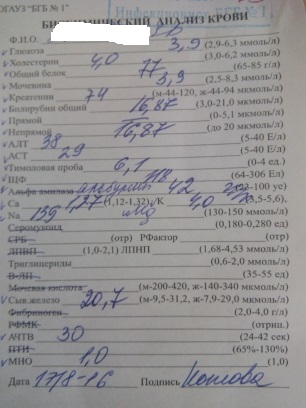 ОГАУЗ "БГБ № 1"
БИОХИМИЧЕСКИЙ АНАЛИЗ КРОВИ
Ф.И.О.
Глюкоза 3,9 (2,9-6,3 ммоль/л)
Холестерин 4,0 (3,0-6,2 ммоль/л)
Общий белок 77 (65-85 г/л)
Мочевина 3,9 (2,5-8,3 ммоль/л)
Креатенин 74 (м-44-120, ж-44-94 мкмоль/л)
Билирубин общий 16,87 (3,0-21,0 мкмоль/л)
Прямой (0-5,1 мкмоль/л)
Непрямой 16,87 (до 20 мкмоль/л)
АЛТ 38 (5-40 Е/л)
АСТ 29 (5-40 Е/л)
Тимоловая проба 6,1 (0-4 ед.)
ЩФ (64-306 Ел)
Альфа амилаза альбумин 42 -100 уе)
Ca 1,77 (1,12-1,32) /К 4,0 -5,6),
Na 139 Mg (130-150 ммоль/л)
Серомукоид (0,180-0,280 ед)
СРБ (отр) РФактор (отр)
ЛПВП (1,0-2,1) ЛПНП (1,68-4,53 ммоль/л)
Триглицериды (0,6-2,0 ммоль/л)
В-ЛП (35-55 ед)
Мочевая кислота (м-200-420, ж-140-340 мкмоль/л)
Сыв.железо 20,7 (м-9,5-31,2, ж-7,9-29,0 мкмоль/л)
Фибриноген (2,0-4,0 г/л)
РФМК (отриц.)
АЧТВ 30 (24-42 сек)
ПТИ (65%-130%)
МНО 1,0 (1,0)
Дата 17/8-16 Подпись